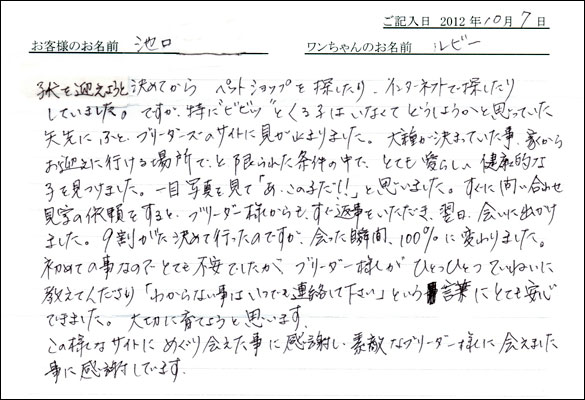 ご記入日 2012年10月7日
お客様のお名前 池口 ワンちゃんのお名前 ルビー
子犬を迎えようと決めてから ペットショップを探したり、インターネットで探したり
していました。ですが、特に"ビビッ"とくる子はいなくてどうしようかと思っていた
矢先に、ふと、ブリーダーズのサイトに目が止まりました。犬種が決まっていた事、家から
お迎えに行ける場所で、と限られた条件の中で、とても愛らしい健康的な
子を見つけました。一目写真を見て「あ、このまだ!!」と思いました。すぐに問い合わせ
見学の依頼をすると、ブリーダー様からも、すぐ返事をいただき、翌日、会いに出かけ
ました。9割がた決めて行ったのですが、会った瞬間、100%に変わりました。
初めての事なのでとても不安でしたが、ブリーダー様が ひとつひとつていねいに
教えてくださり「わからない事はいつでも連絡して下さい」という言葉にとても安心
できました。大切に育てようと思います。
この様なサイトにめぐり会えた事に感謝し、素敵なブリーダー様に会えました
事に感謝しています。